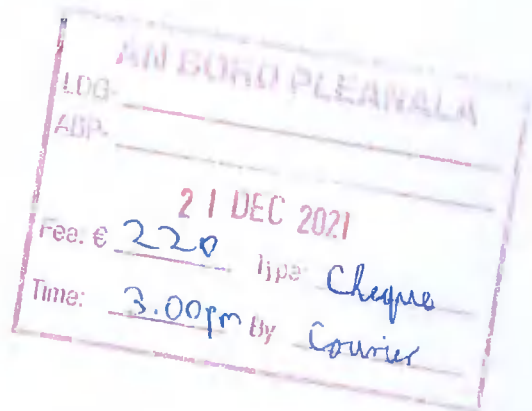 AN BORD PLEANÁLA
LDG-
ABP-
21 DEC 2021
Fee: € 220 Type: Cheque
Time: 3.00pm By Courier